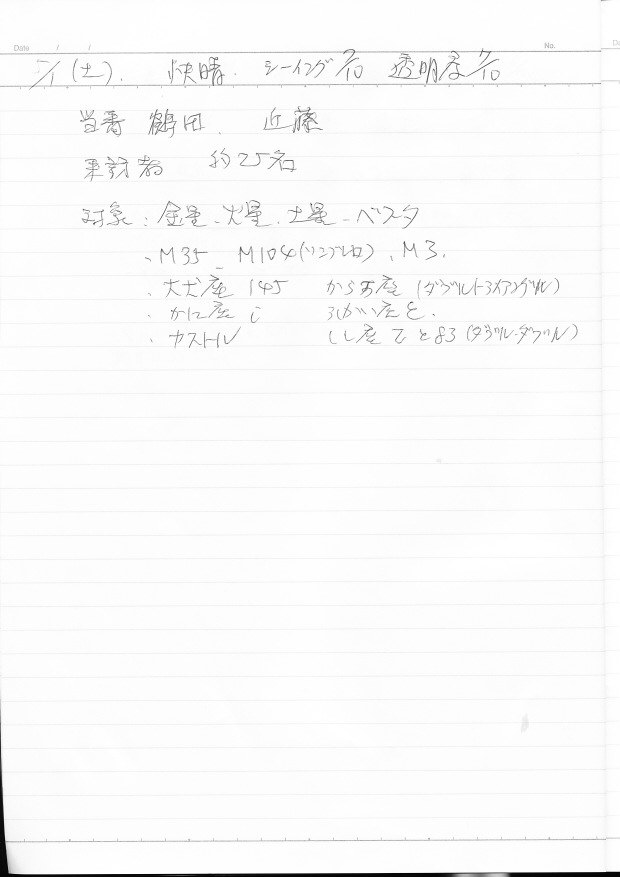 Date / /
No.
5/1 (土). 快晴. シーイング 7/10 透明度 7/10
当番 鶴田. 近藤
来訪者 約25名
対象: 金星、火星、土星、ベスタ
、M35、M104(ソンブレロ)、M3.
・大犬座 145 からす座 (ダブルトライアングル)
・かに座 ι うみへび座 ε.
・カストル しし座 τ と 83 (ダブル・ダブル)